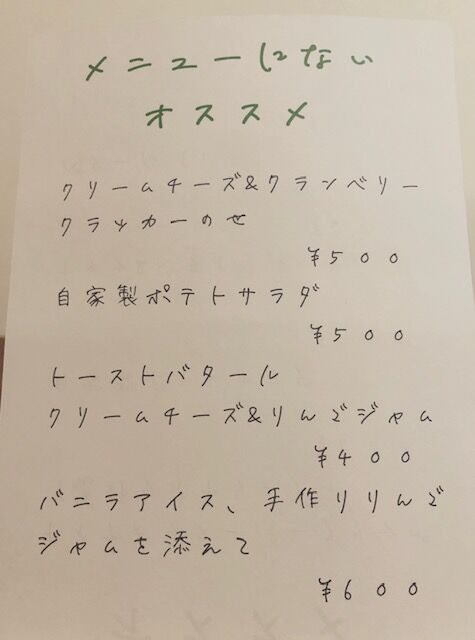 メニューにない
オススメ
クリームチーズ&クランベリー
クラッカーのせ
¥500
自家製ポテトサラダ
¥500
トーストバタール
クリームチーズ&りんごジャム
¥400
バニラアイス、手作りりんご
ジャムを添えて
¥600